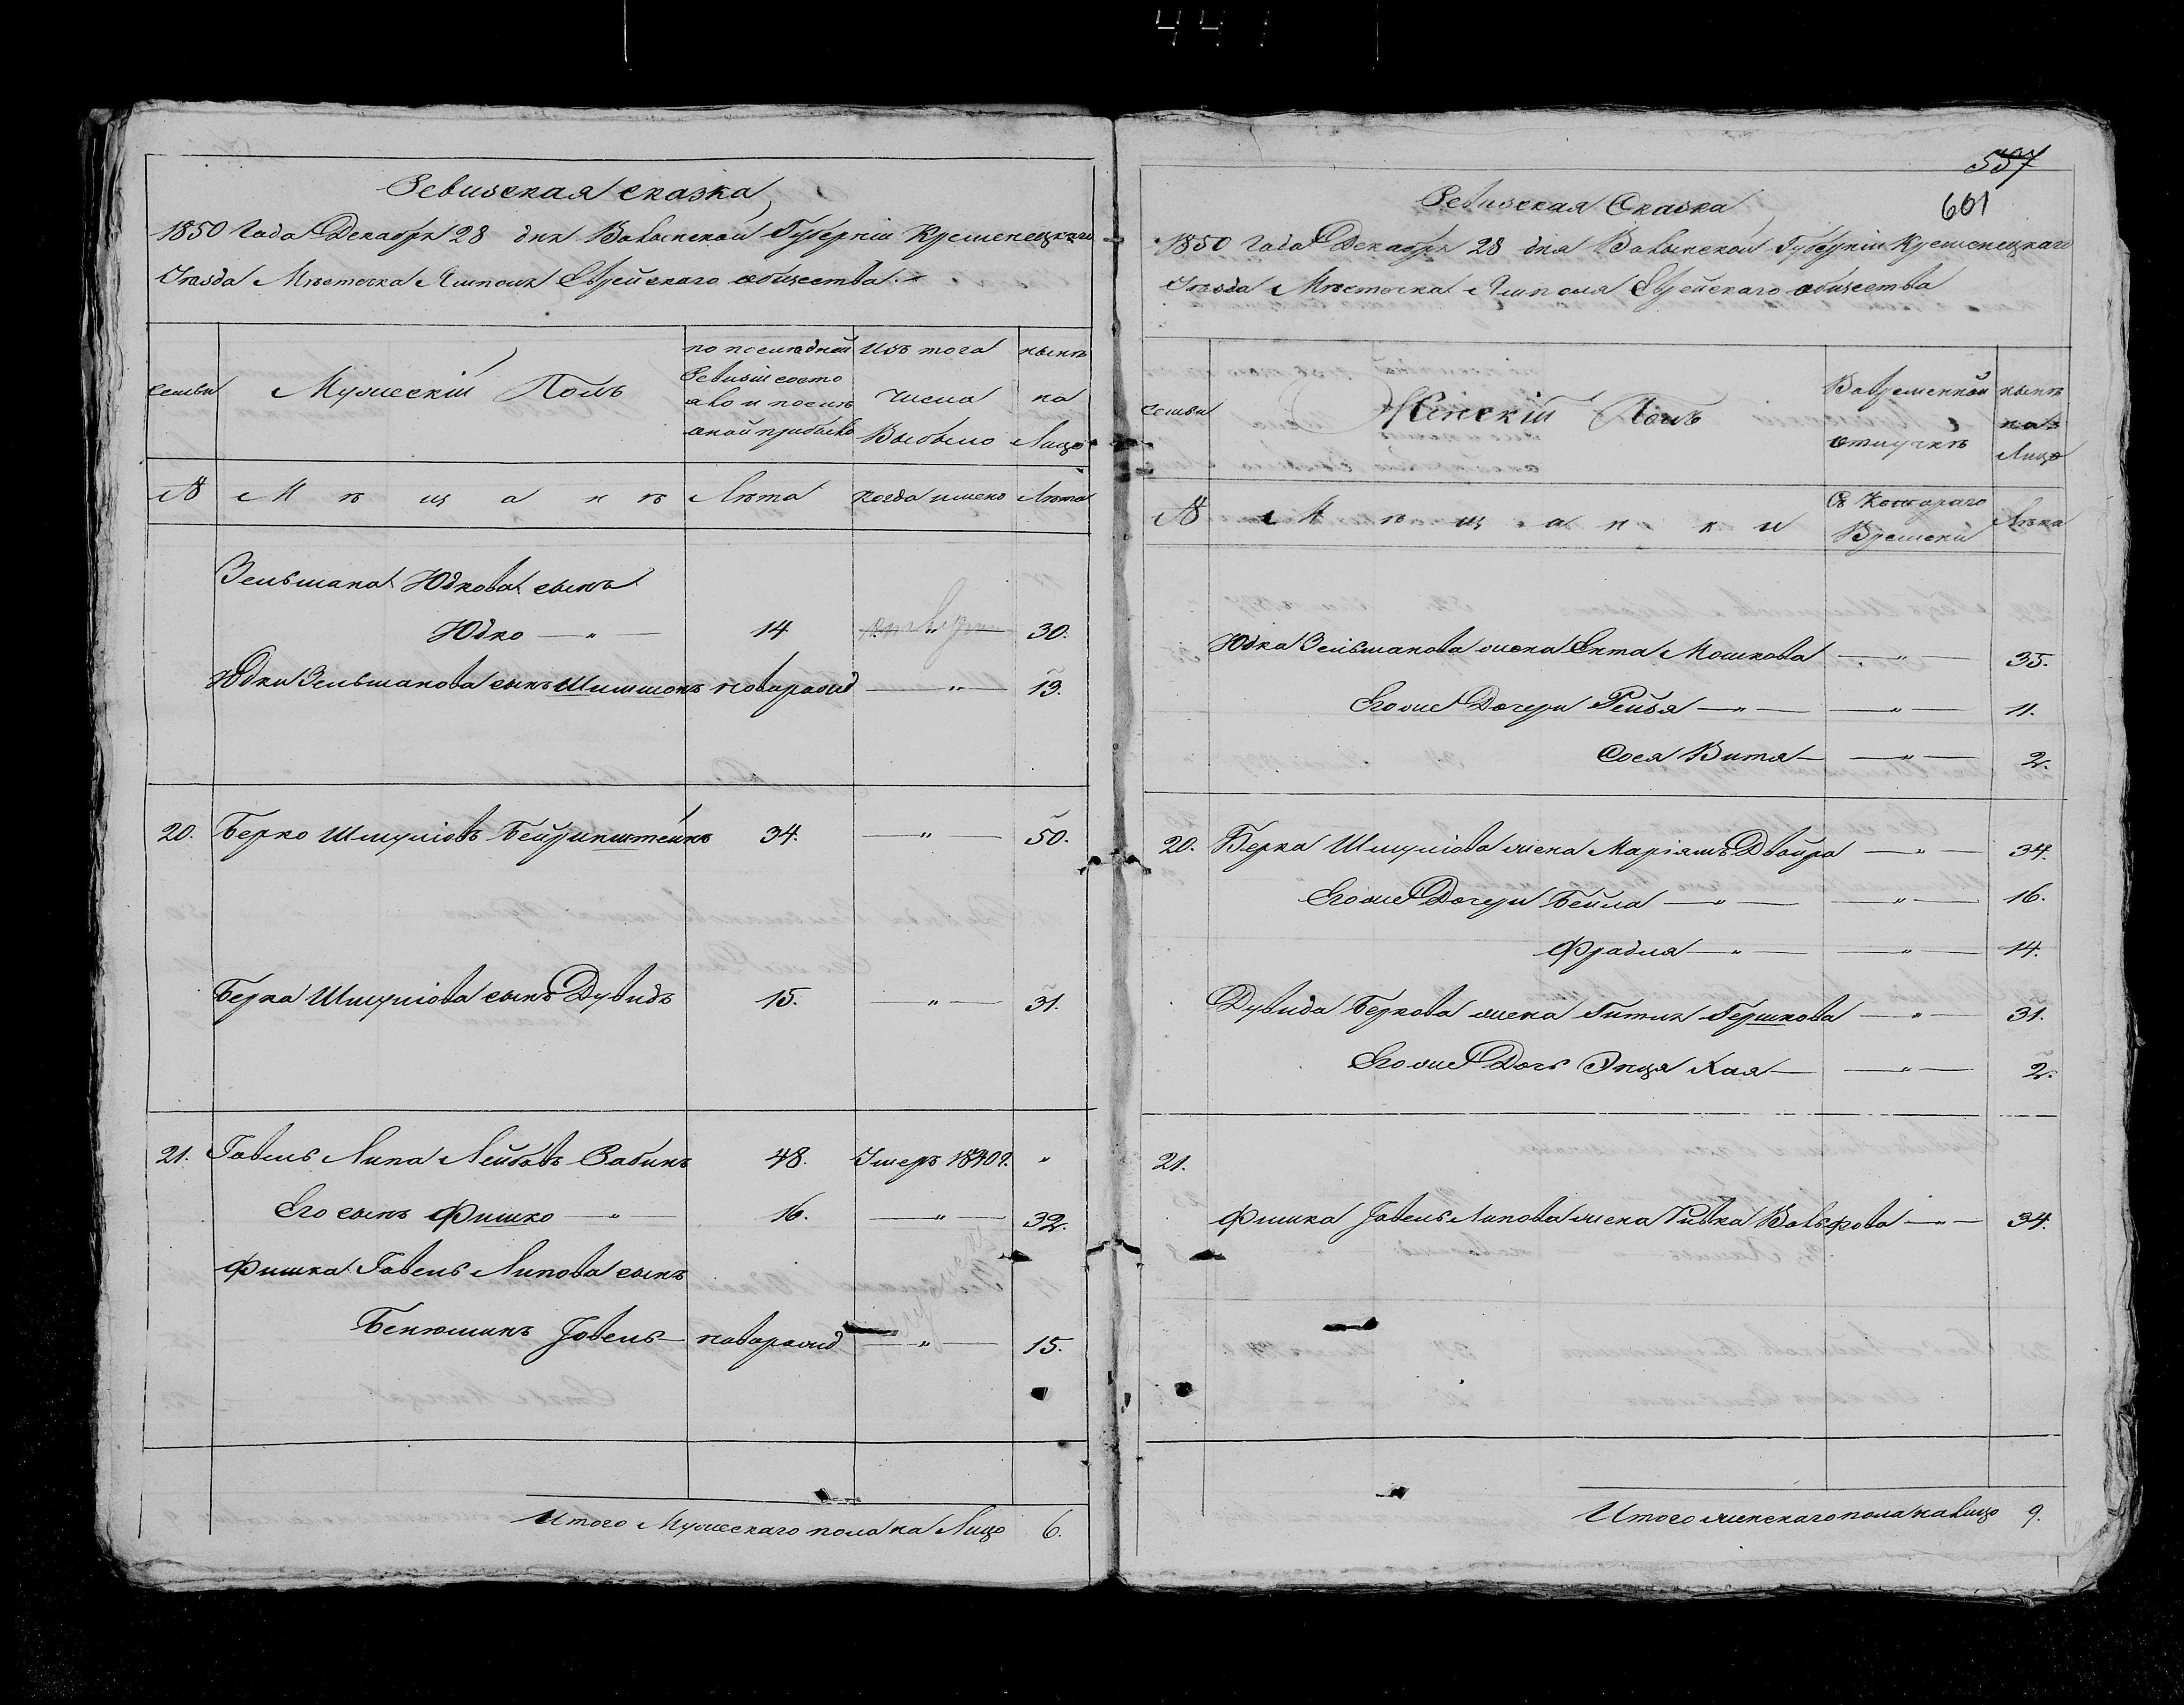 Ревизская сказка
1850 Года Декабря 28 дня Волынской Губерніи Кременецкаго
Уезда Мѣстечка Ямполя Еврейскаго общества
семьи
Мужескій Полъ
по последней
Ревизіи состо
яло и после
оной прибыло
Изъ того
числа
Выбыло
нынѣ
на
Лицо
№
М ѣ щ а н ѣ
Лѣта
когда имено
Лѣта
Зельмана Юдкова сынъ
Юдко — „ — 14 — „ — 30.
Юдки Зельманова сынъ Шимшонъ новорожд — „ — 13.
20. Берко Шмуліовъ Бейринштейнъ 34. — „ — 50.
Берка Шмуліова сынъ Дувидъ 15. — „ — 31.
21. Говель Липа Лейбовъ Бабинъ 48. Умеръ 1840 г. „
Его сынъ Фишко — „ — 16. — „ — 32.
Фишка Говель Липова сынъ
Бенюминъ Говель — новорожд — „ — 15.
Итого Мужескаго пола на Лицо 6.
557
601
Ревизская Сказка
1850 Года Декабря 28 дня Волынской Губерніи Кременецкаго
Уезда Мѣстечка Ямполя Еврейскаго общества
семьи
Женскій Полъ
Вовременной
отлучкѣ
нынѣ
на
Лицо
№
М ѣ щ а н к и
Съ Котораго
Времени
Лѣта
Юдка Зельманова жена Ента Мошкова — „ — 35.
Его же Дочери Рейзя — „ — — „ — 11.
Сося Витя — — „ — 2.
20. Берка Шмуліова жена Маріямъ Двойра — „ — 34.
Его же Дочери Бейла — „ — — „ — 16.
Фрадля — „ — — „ — 14.
Дувида Беркова жена Гитля Гершкова — „ — 31.
Его же Дочь Энця Хая — — „ — 2.
21.
Фишка Говель Липова жена Ривка Вольфова — „ — 34.
Итого женскаго пола на лицо 9.